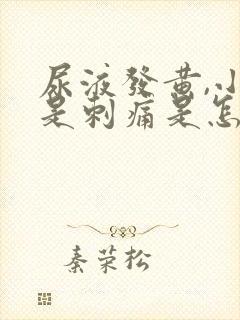 尿液發黄,小
是刺痛是怎
秦荣松